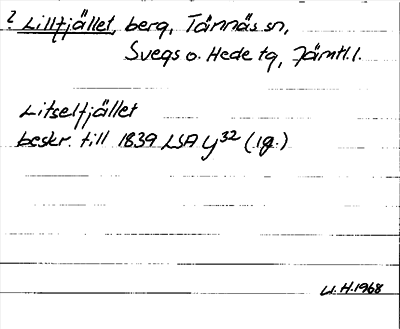 ? Lillfjället, berg, Tännäs sn,
Svegs o. Hede tg, Jämtl. l.
Litselfjället
beskr. till 1839 LSA y32 (1g.)
W.H.1968